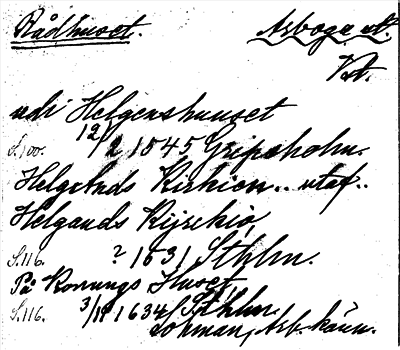 Rådhuset. Arboga st.
Vst.
udi Helgenshuuset
S.100. 12/2 1545 Gripsholm.
Helgends Kirkion.. utaf..
Helgands Kijrckio
S.116. ? 1631 Sthlm.
På Konungs Huset,
S.116. 3/11 1634 Sthlm.
Lohman, Arb. känn.